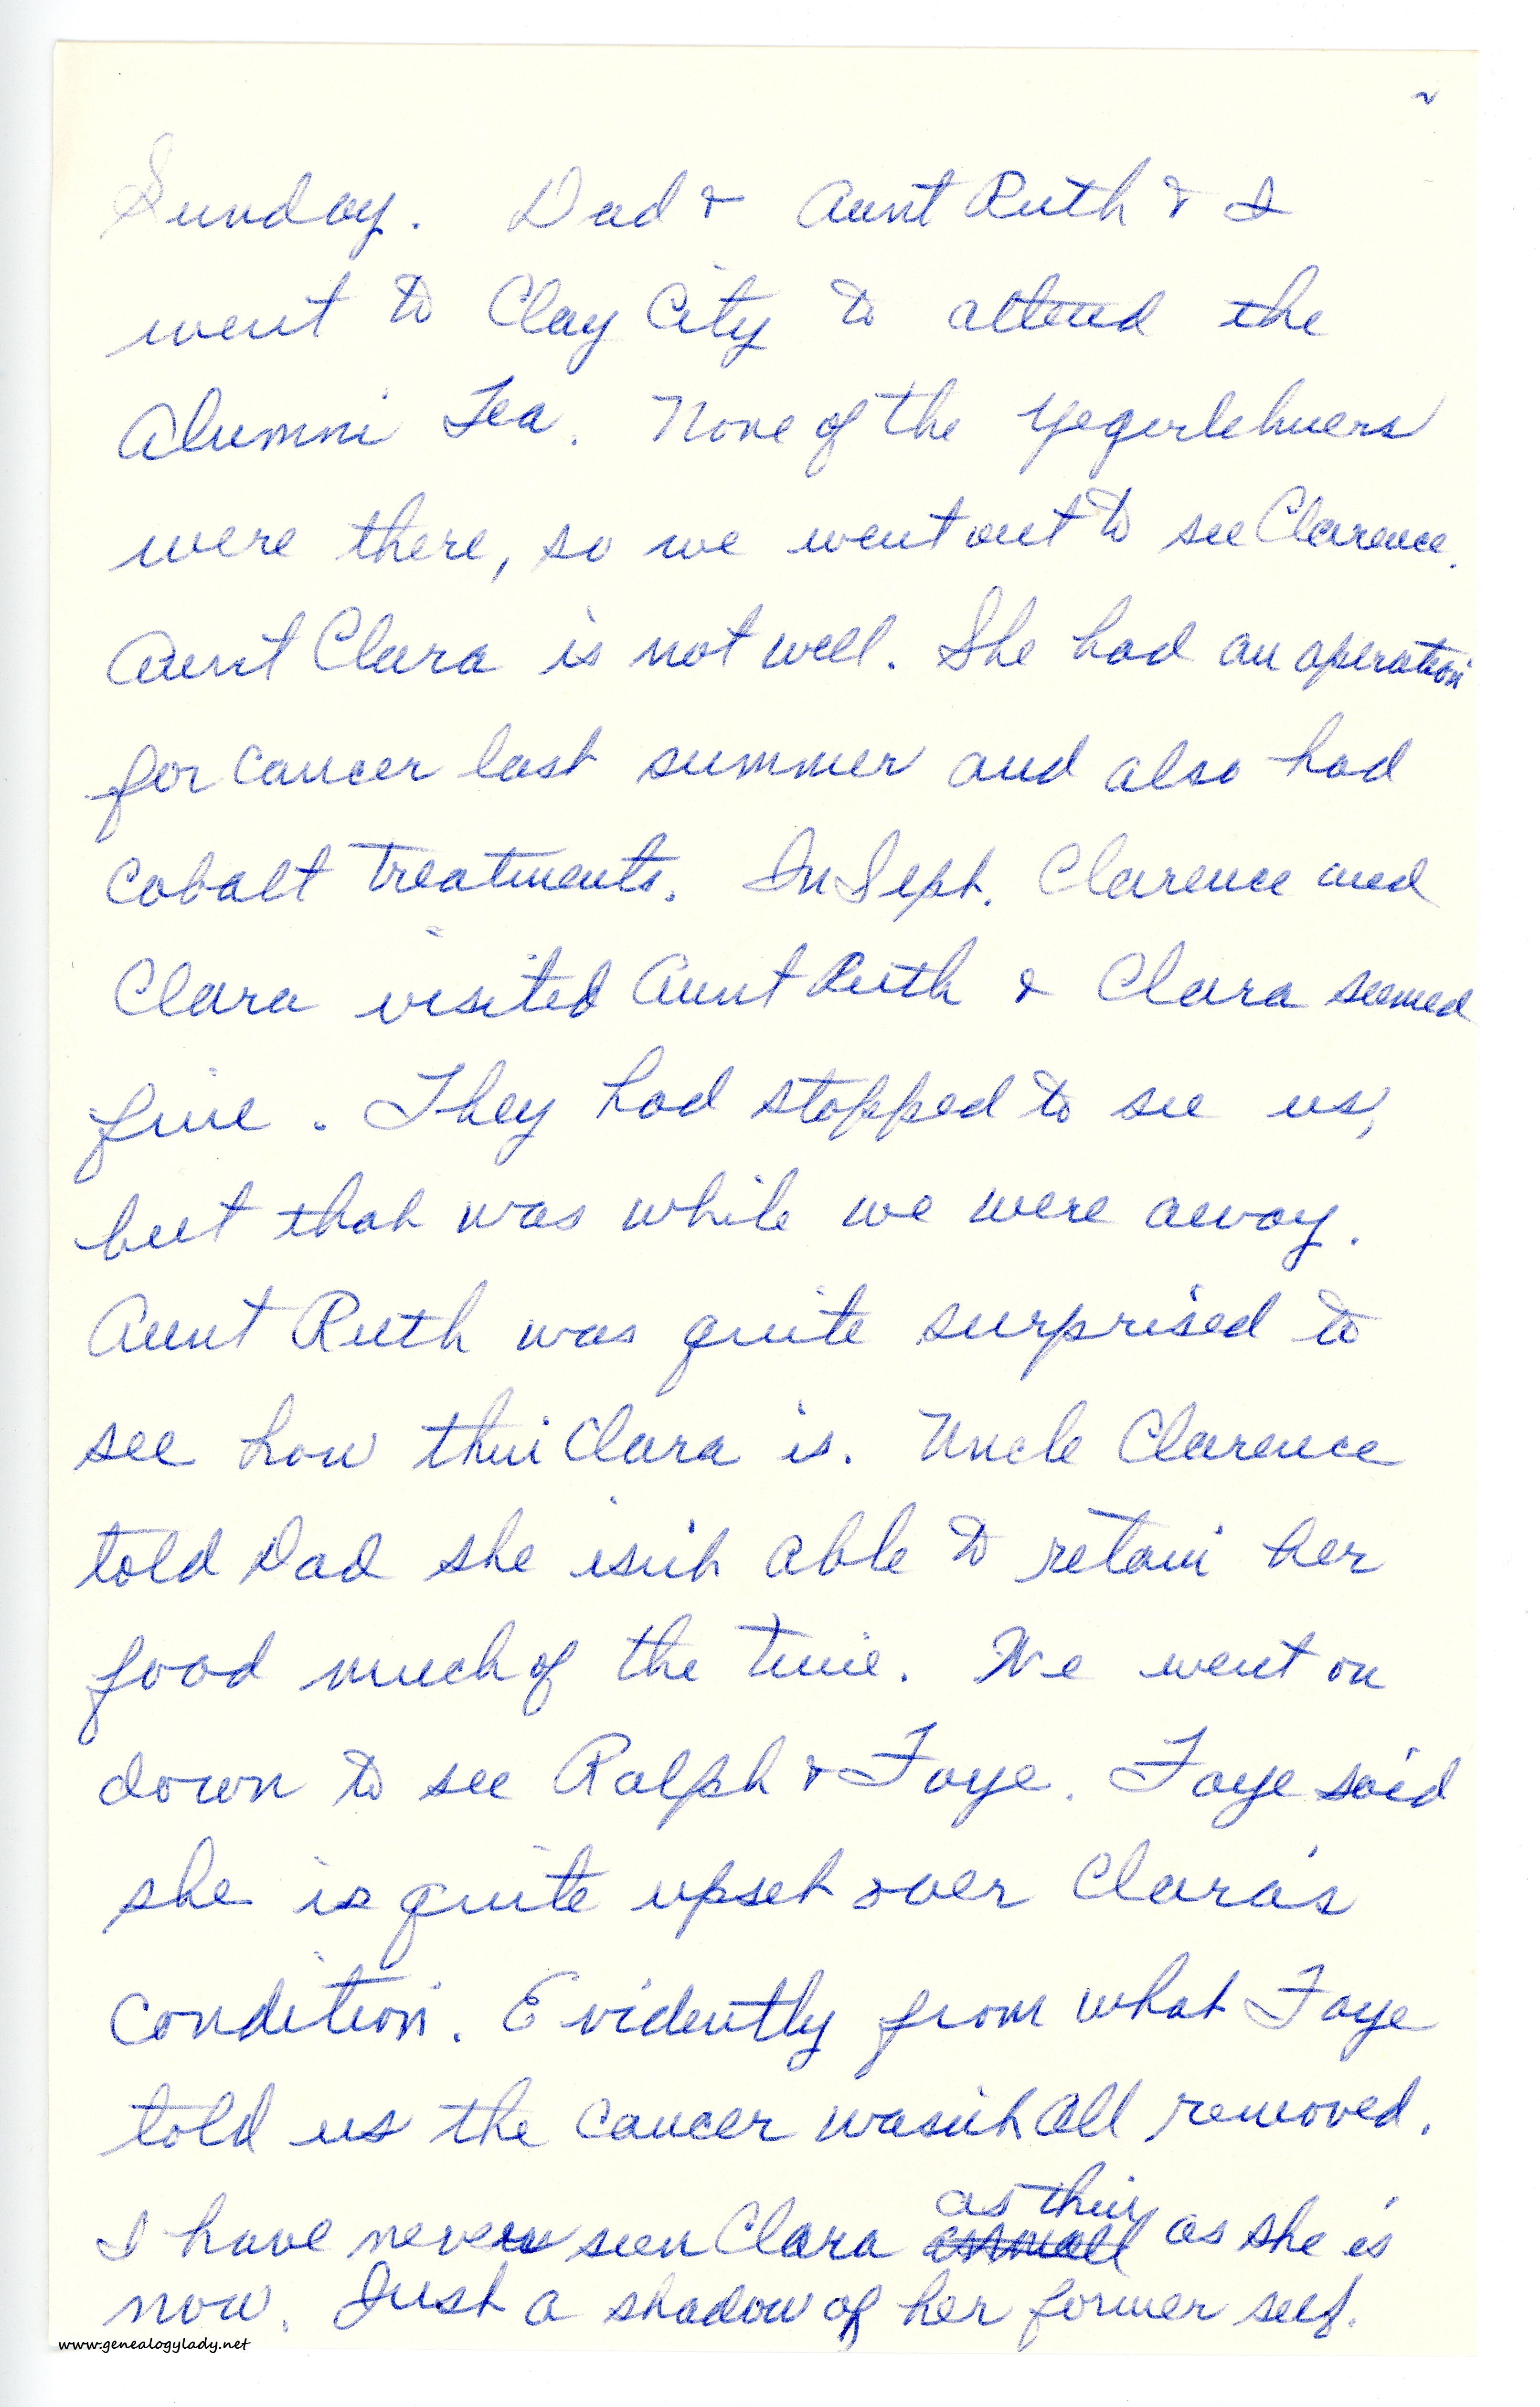 Sunday. Dad & Aunt Ruth & I
went to Clay City to attend the
Alumni Tea. None of the Yegerlehners
were there, so we went out to see Clarence.
Aunt Clara is not well. She had an operation
for cancer last summer and also had
cobalt treatments. In Sept. Clarence and
Clara visited Aunt Ruth & Clara seemed
fine. They had stopped to see us,
but that was while we were away.
Aunt Ruth was quite surprised to
see how thin Clara is. Uncle Clarence
told Dad she isn't able to retain her
food much of the time. We went on
down to see Ralph & Faye. Faye said
she is quite upset over Clara's
condition. Evidently from what Faye
told us the cancer wasn't all removed.
I have never seen Clara as thin as she is
now. Just a shadow of her former self.
www.genealogylady.net